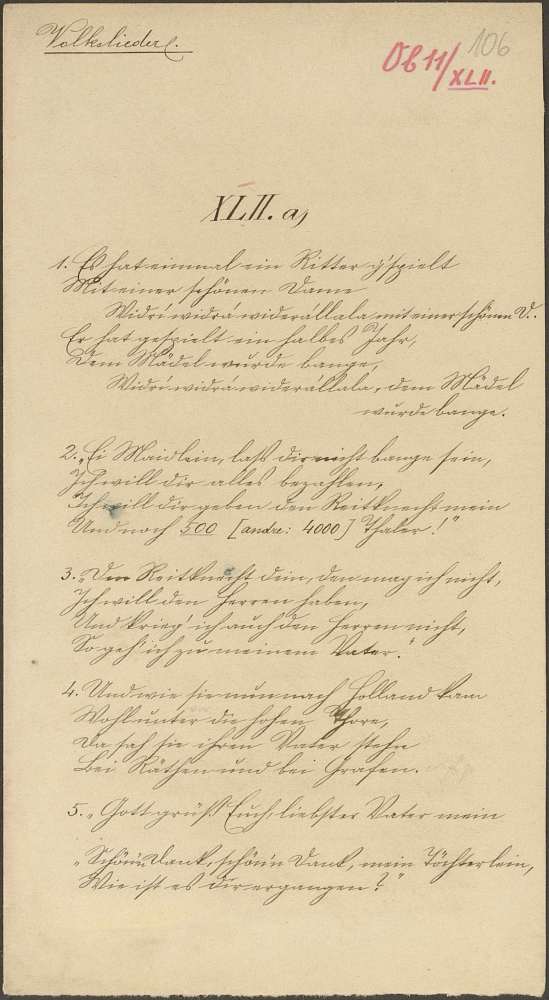 Volkslieder.
106
Ob 11/XLII.
XLII. a,
1. Es hat einmal ein Ritter g'spielt
Mit einer schönen Dame
Widri widrá widerállala mit einer schönen D..
Er hat gespielt ein halbes Jahr,
Dem Mädel wurde bange,
Widri-widrá widerállala, dem Mädel
wurde bange.
2. „Ei Maidlein, laß dir nicht bange sein,
Ich will dir alles bezahlen,
Ich will dir geben den Reitknecht mein
Und noch 500 [andre: 4000] Thaler!"
3. „Den Reitknecht dein, den mag ich nicht,
Ich will den Herren haben,
Und krieg' ich auch den Herren nicht,
So geh' ich zu meinem Vater."
4. Und wie sie nun nach Holland kam
Wohl unter die hohen Thore,
Da sah sie ihren Vater stehn
Bei Räthen und bei Grafen.
5. „Gott grüß Euch, liebster Vater mein
„Schön'n Dank, schön'n Dank, mein Töchterlein,
Wie ist es dir ergangen?"